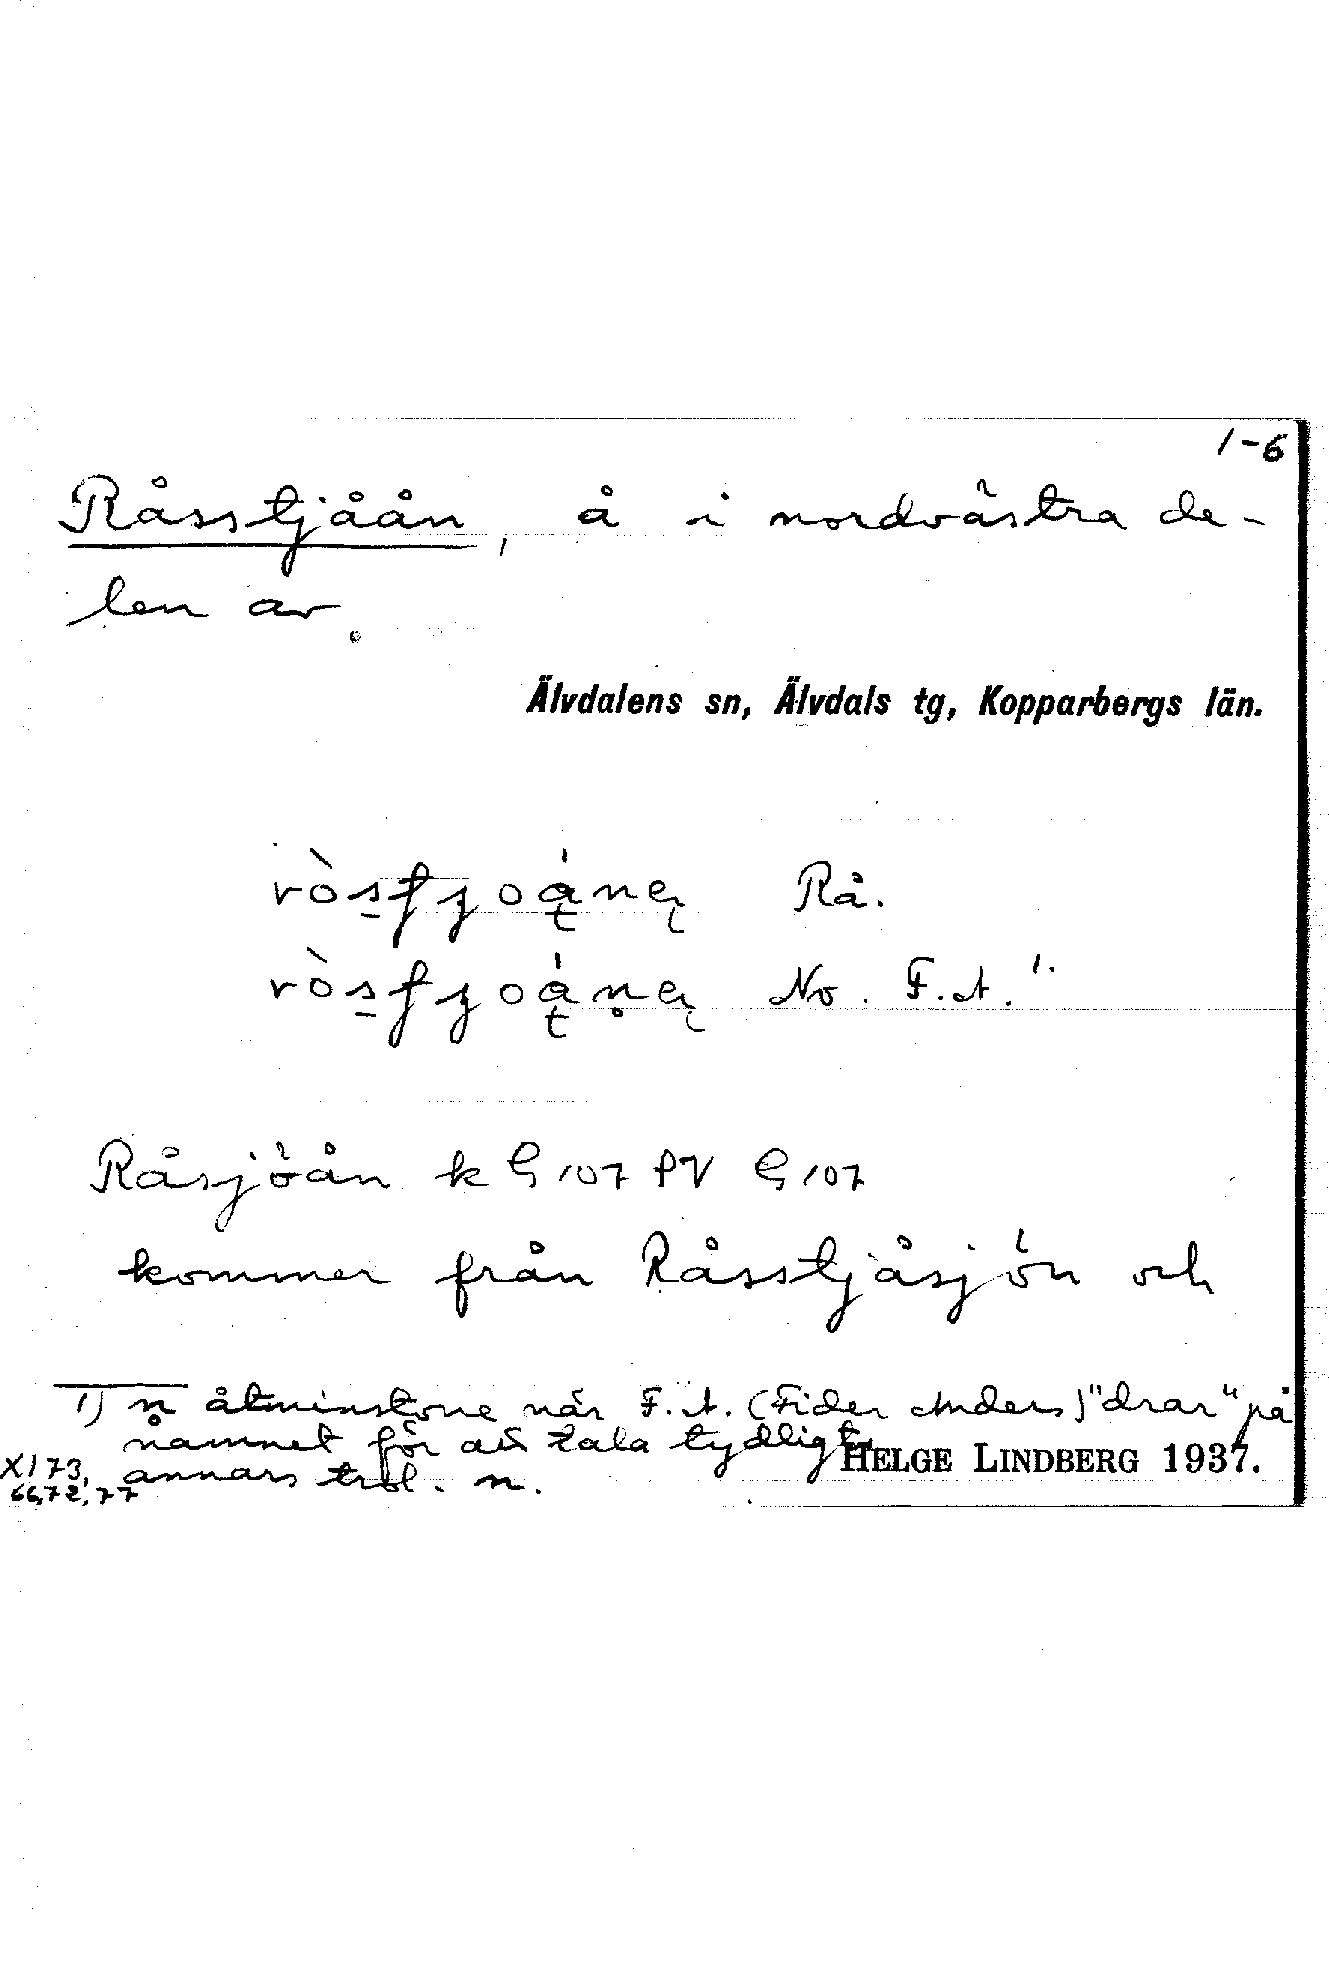 1-6
Råsstjåån, å i nordvästra de-
len av
Älvdalens sn, Älvdals tg, Kopparbergs län.
Rå.
No. F.A. 1.
Råsjöån k G 107 PV G 107
kommer från Råsstjåsjön och
1) n̥ åtminstone när F.A. (Fider Anders) "drar" på
namnet för att tala tydligt,
HELGE LINDBERG 1937.
XI 73, annars trol. n.
66, 72, 77